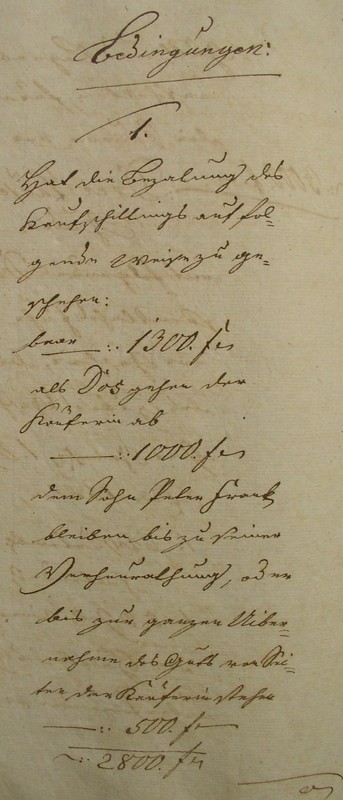 Bedingungen:
1.
Hat die Bezalung des
Kaufschillings auf fol=
gende Weise zu ge=
schehen:
baar —.: 1300. fr
als Dos gehen der
Käuferin ab
—.: 1000. fr
dem Sohn Peter Frank
bleiben bis zu seiner
Verheurathung, oder
bis zur ganzen Uiber=
nahme des Guts von Sei=
ten der Käuferin stehen
—.: 500. fr
—.: 2800. fr